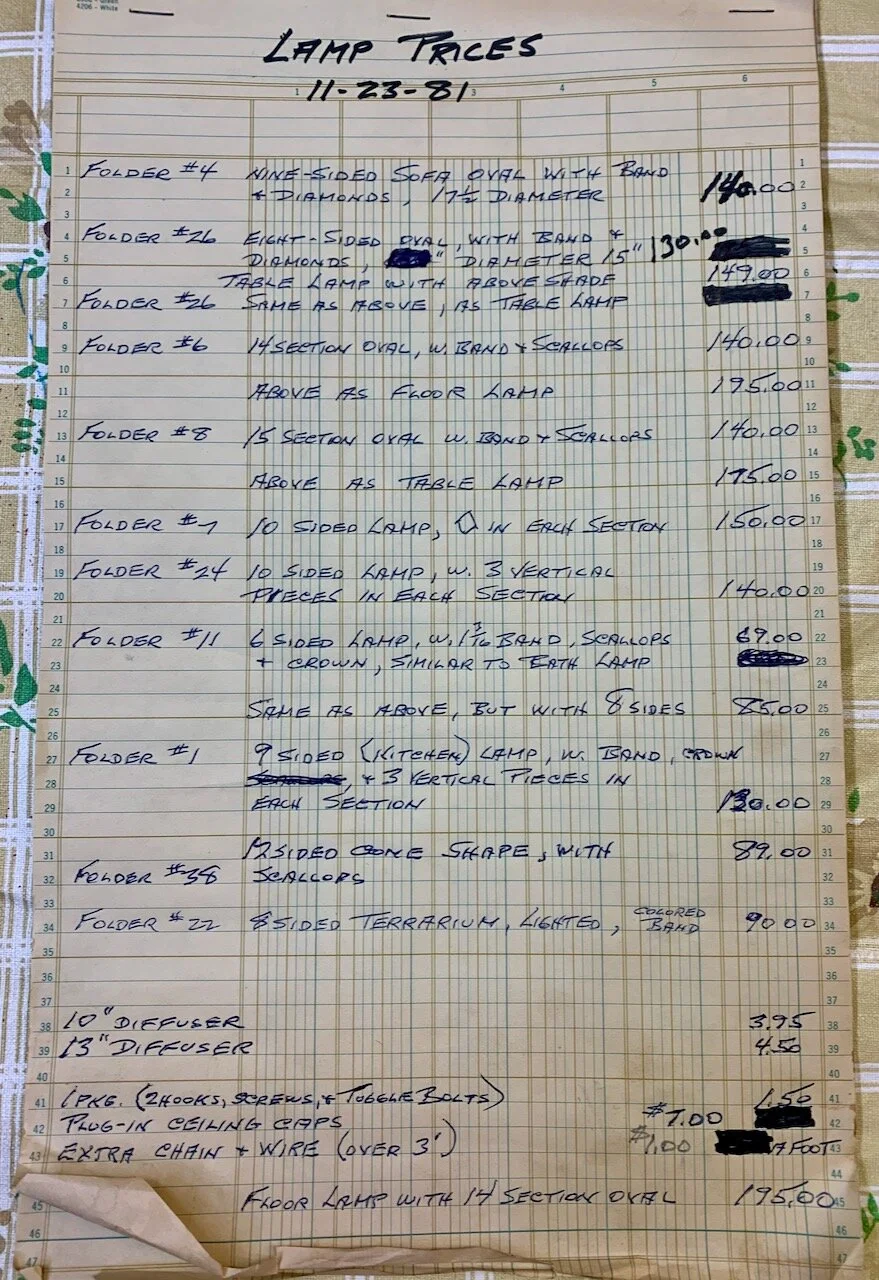 4206 - White
LAMP PRICES
11-23-81
1 3 4 5 6
1 FOLDER #4 NINE-SIDED SOFA OVAL WITH BAND 1
2 + DIAMONDS, 17½ DIAMETER 140.00 2
3 3
4 FOLDER #26 EIGHT-SIDED OVAL, WITH BAND + 130.00 4
5 DIAMONDS, " DIAMETER 15" 5
6 TABLE LAMP WITH ABOVE SHADE 149.00 6
7 FOLDER #26 SAME AS ABOVE, AS TABLE LAMP 7
8 8
9 FOLDER #6 14 SECTION OVAL, W. BAND + SCALLOPS 140.00 9
10 10
11 ABOVE AS FLOOR LAMP 195.00 11
12 12
13 FOLDER #8 15 SECTION OVAL W. BAND + SCALLOPS 140.00 13
14 14
15 ABOVE AS TABLE LAMP 175.00 15
16 16
17 FOLDER #7 10 SIDED LAMP, IN EACH SECTION 150.00 17
18 18
19 FOLDER #24 10 SIDED LAMP, W. 3 VERTICAL 19
20 PIECES IN EACH SECTION 140.00 20
21 21
22 FOLDER #11 6 SIDED LAMP, W. 1 3/16 BAND, SCALLOPS 69.00 22
23 + CROWN, SIMILAR TO LAMP 23
24 24
25 SAME AS ABOVE, BUT WITH 8 SIDES 85.00 25
26 26
27 FOLDER #1 9 SIDED (KITCHEN) LAMP, W. BAND, CROWN 27
28 + 3 VERTICAL PIECES IN 28
29 EACH SECTION 130.00 29
30 30
31 12 SIDED CONE SHAPE, WITH 89.00 31
32 FOLDER #38 SCALLOPS 32
33 33
34 FOLDER #22 8 SIDED TERRARIUM, LIGHTED, COLORED BAND 90.00 34
35 35
36 36
37 37
38 10" DIFFUSER 3.95 38
39 13" DIFFUSER 4.50 39
40 40
41 1 PKG. (2 HOOKS, SCREWS, + TOGGLE BOLTS) 1.50 41
42 PLUG-IN CEILING CAPS $7.00 42
43 EXTRA CHAIN + WIRE (OVER 3') $1.00 A FOOT 43
44 44
45 FLOOR LAMP WITH 14 SECTION OVAL 195.00 45
46 46
47 47